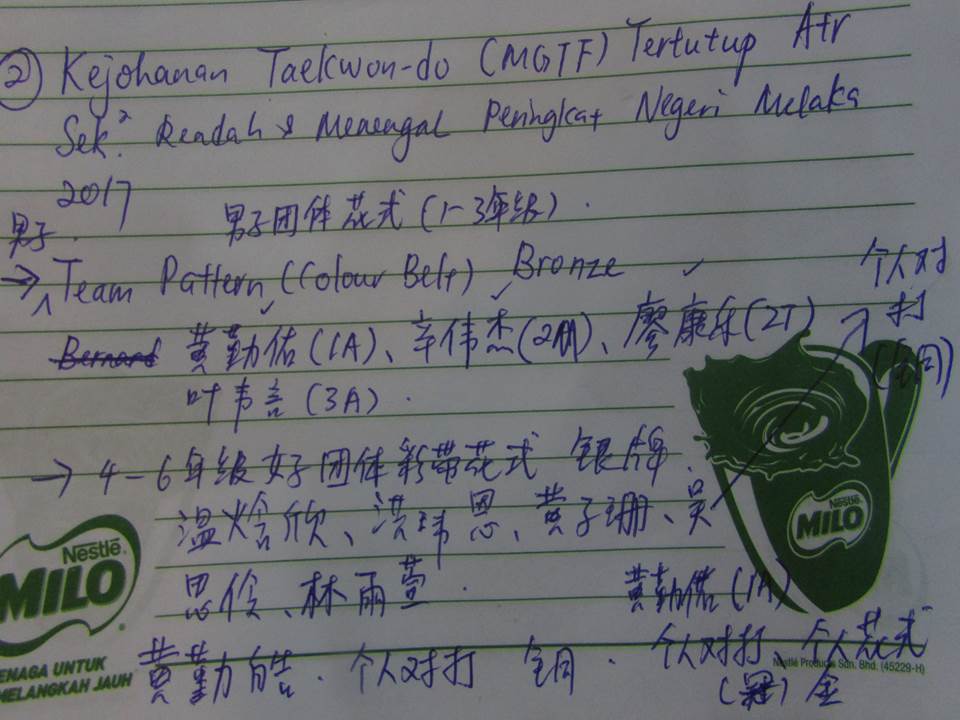 ② Kejohanan Taekwon-do (MGTF) Tertutup Antr
Sek² Rendah & Menengah Peringkat Negeri Melaka
2017
男子. 男子团体花式 (1-3年级).
→ Team Pattern (Colour Belt) Bronze ✓
个人对
打
Bernard 黄勤佑 (1A)、辛伟杰 (2M)、廖康乐 (2T)
(铜)
叶韦言 (3A).
→ 4-6年级女子团体彩带花式 银牌.
温焓欣、洪玮恩、黄子珊、吴
思伶、林雨萱.
黄勤偌 (1A)
黄勤皓. 个人对打 铜. 个人对打、个人花式
(冠) 金
Nestlé
MILO
ENAGA UNTUK
MELANGKAH JAUH
Nestlé
MILO
Nestlé Products Sdn. Bhd. (45229-H)